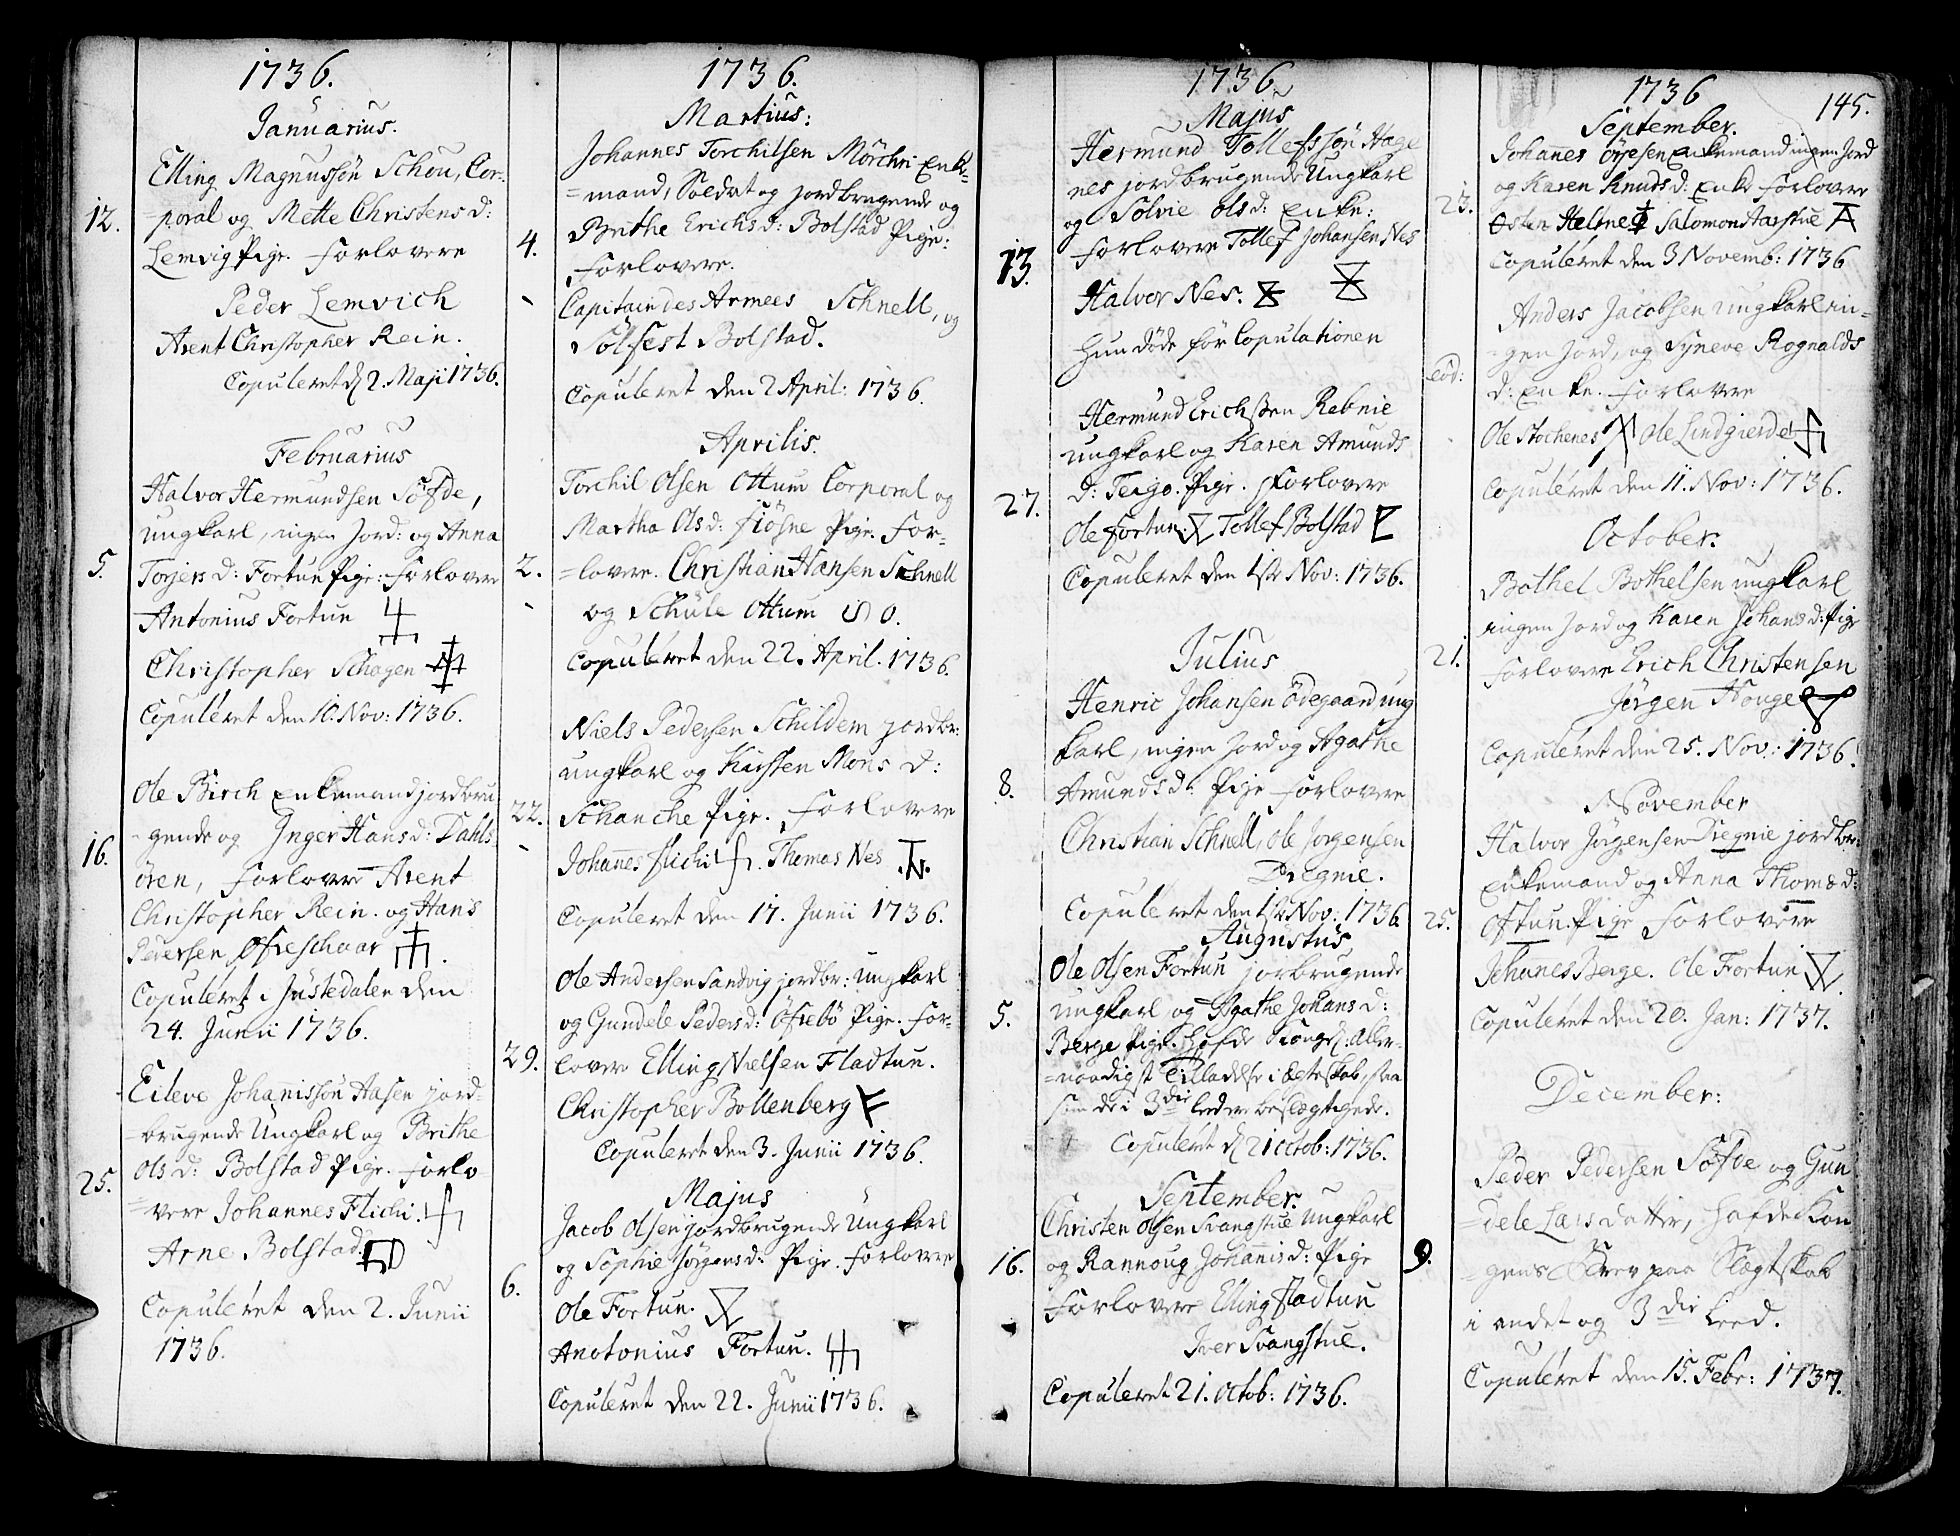 1736.
Januarius.
Elling Magnussön Schou, Cor-
12. =poral og Mette Christens d:
Lemvig Pige. Forlovere
Peder Lemvich
Arent Christopher Rein.
Copuleret d 2. Maji 1736.
Februarius
Halvor Hermundsen Söfde,
ungkarl, ingen Jord: og Anna
5. Torjers d: Fortun Pige: Forlovere
Antonius Fortun
Christopher Schagen
Copuleret den 10. Nov: 1736.
Ole Birch Enkemand jordbru
16. =gende og Inger Hans d: Dahls
ören, Forlovere Arent
Christopher Rein. og Hans
Pedersen Öfreschaar
Copuleret i Justedalen den
24. Junii 1736.
Eileve Johanissön Hasen jord-
=brugende Ungkarl og Brithe
25. Ols d: Bolstad Pige. Forlo-
=vere Johannes Flichi.
Arne Bolstad.
Copuleret den 2. Junii
1736.
1736.
Martius:
Johannes Torchilsen Mörchri Enke-
=mand, Soldat og jordbrugende og
4. Brithe Erichs d: Bolstad Pige:
Forlovere.
Capitain des Armees Schnell, og
Sölfest Bolstad.
Copuleret den 2 April: 1736.
Aprilis.
Torchil Olsen Ottum Corporal og
Martha Ols d: Fiösne Pige. For-
2. =lovere. Christian Hansen Schnell
og Schule Ottum S O.
Copuleret den 22. April. 1736.
Niels Pedersen Schildem jordbr:
ungkarl og Kirsten Mons d:
22. Schanche Pige. Forlovere
Johannes Flichi. Thomas Nes T.N.
Copuleret den 17. Junii 1736.
Ole Andersen Sandvig jordbr: ungkarl
og Gundele Peders d: Öfrebö Pige. For-
29. lovere Elling Nielsen Fladtun.
Christopher Bollenberg
Copuleret den 3. Junii 1736.
Majus
Jacob Olsen jordbrugende Ungkarl
og Sophie Jörgens d: Pige. Forlovere
6. Ole Fortun.
Anotonius Fortun.
Copuleret den 22. Junii 1736.
1736
Majus
Hermund Tollefssön Hage
nes jordbrugende Ungkarl
og Sölvie Ols d: Enke:
13. Forlovere Tollef Johansen Nes
Halvor Nes.
Hun döde för Copulationen
Hermund Erichssen Rebnie
ungkarl og Karen Amunds
27. d: Teigo. Pige. Forlovere
Ole Fortun. Tollef Bolstad
Copuleret den 1ste Nov: 1736.
Julius
Henric Johansen Ödegaard ung
karl, ingen Jord og Agathe
8. Amunds d: Pige Forlovere
Christian Schnell, Ole Jorgensen
Dregnie.
Copuleret den 1ste Nov: 1736
Augustus
Ole Olsen Fortun jorbrugende
5. ungkarl og Agathe Johans d:
Berge Pige. Hafde Kongel: Aller-
=naadigst Tilladelse i Ægteskab, saa
som de i 3die leed ere beslægtigede.
Copuleret d 21 octob: 1736.
September.
Christen Olsen Svangstue Ungkarl
16. og Rannoug Johannis d: Pige
Forlovere Elling Fladtun
Iver Svangstue.
Copuleret 21. Octob: 1736.
1736 145.
September.
Johanes Öyesen Enkemand ingen Jord
23. og Karen Knuds d: Enke Forlovere
Osten Heltne Salomon Aarstue
Copuleret den 3 Novemb: 1736
Anders Jacobsen ungkarl in-
=gen Jord, og Syneve Rognalds
eod: d: Enke. Forlovere
Ole Stochenes Ole Lindgierde
Copuleret den 11. Nov: 1736.
October.
Bothel Bothelsen ungkarl
ingen Jord og Karen Johans d: Pige
21. Forlovere Erich Christensen
Jörgen Houge
Copuleret den 25. Nov: 1736.
November
Halvor Jörgensen Dregnie jordbr:
Enkemand og Anna Thomæ d:
25. Oftun. Pige Forlovere
Johanes Berge. Ole Fortun
Copuleret den 20. Jan: 1737.
December:
Peder Pedersen Söfde og Gun
=dele Lars datter, hafde Kon
9. =gens Brev paa Slægtskab
i andet og 3die Leed.
Copuleret den 15. Febr: 1737.